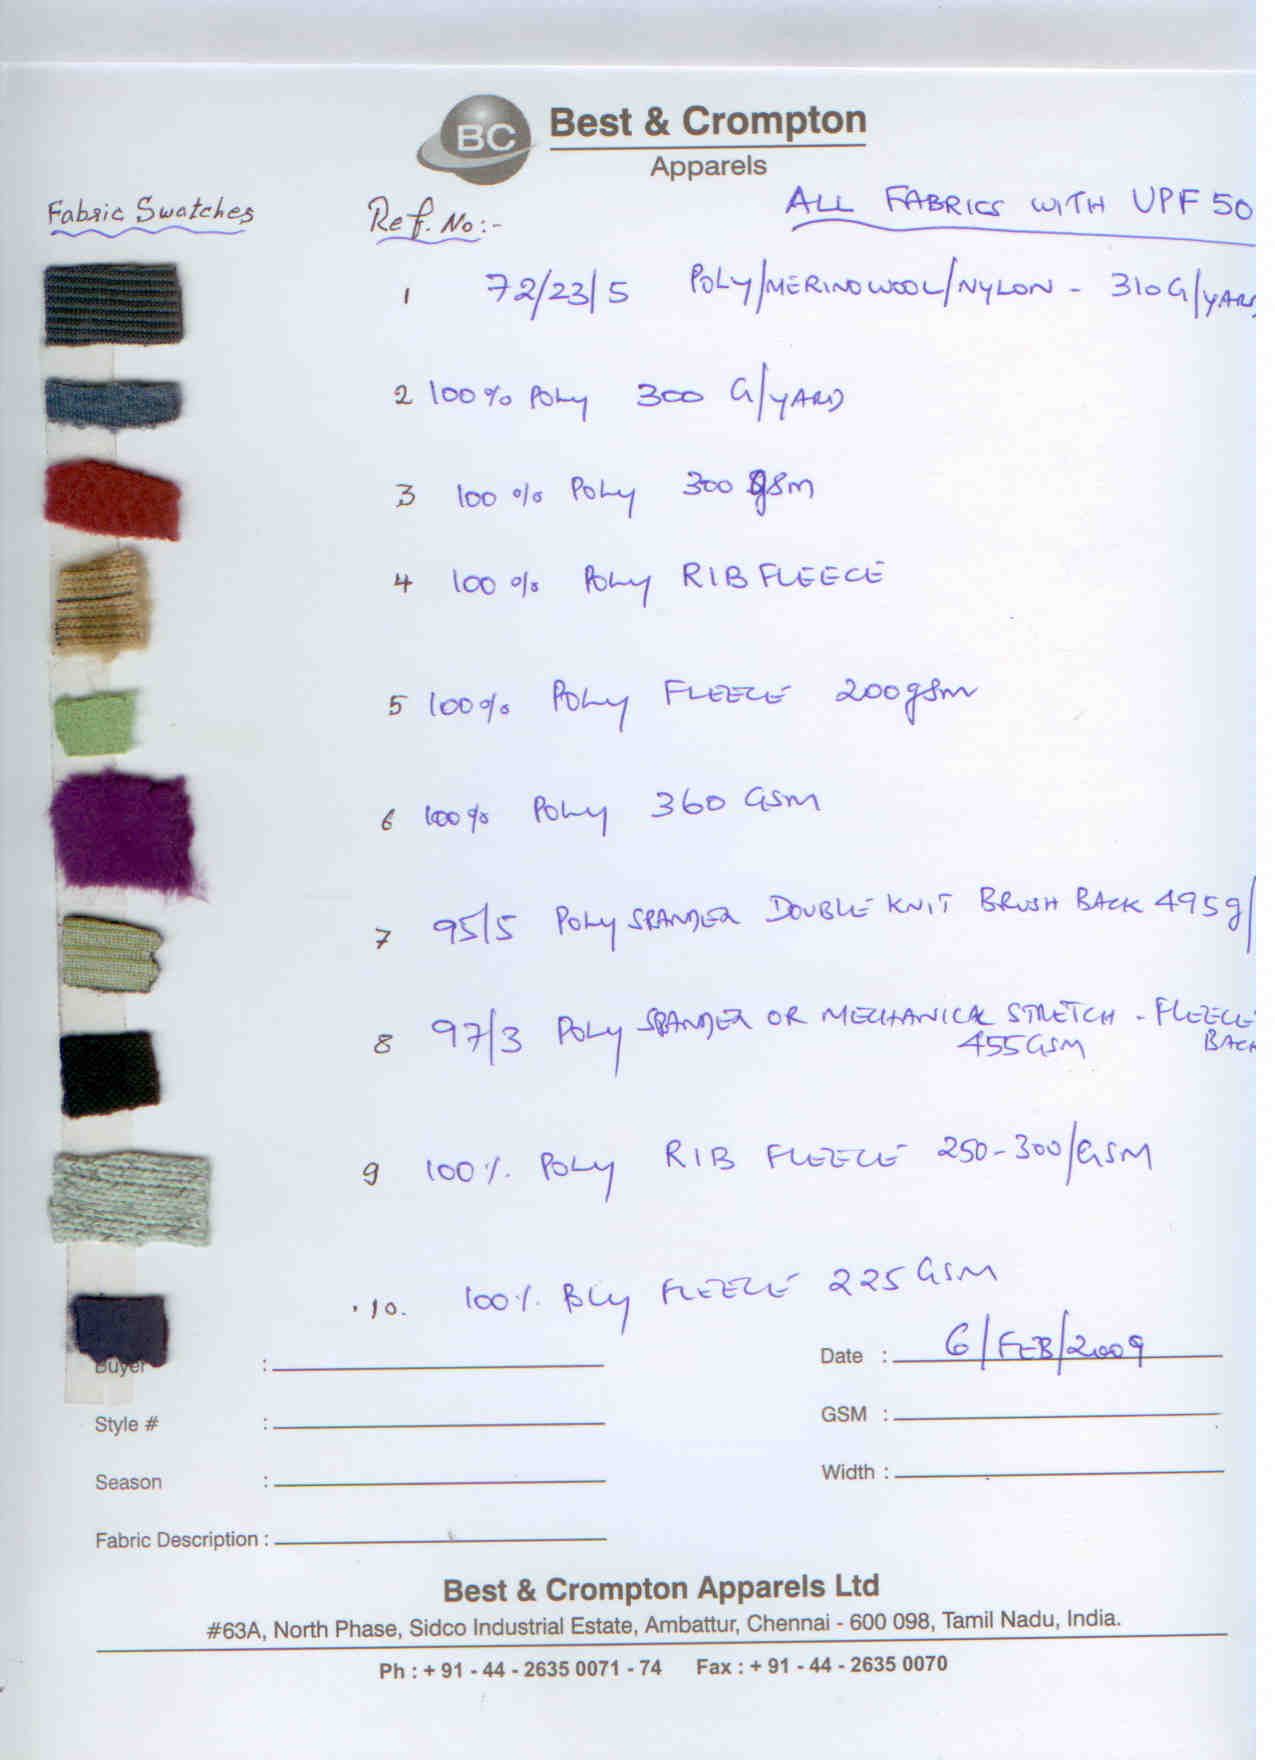 BC
Best & Crompton
Apparels
Fabric Swatches
Ref. No:-
ALL FABRICS WITH UPF 50
1 72/23/5 POLY/MERINOWOOL/NYLON - 310G/YARD
2 100% POLY 300 G/YARD
3 100% POLY 300 gsm
4 100% POLY RIB FLEECE
5 100% POLY FLEECE 200gsm
6 100% POLY 360 GSM
7 95/5 POLY SPANDEX DOUBLE KNIT BRUSH BACK 495g/
8 97/3 POLY SPANDEX OR MECHANICAL STRETCH - FLEECE
455 GSM BACK
9 100%. POLY RIB FLEECE 250-300/GSM
10. 100%. POLY FLEECE 225 GSM
Buyer :
Date : 6/FEB/2009
Style # :
GSM :
Season :
Width :
Fabric Description :
Best & Crompton Apparels Ltd
#63A, North Phase, Sidco Industrial Estate, Ambattur, Chennai - 600 098, Tamil Nadu, India.
Ph : + 91 - 44 - 2635 0071 - 74 Fax : + 91 - 44 - 2635 0070